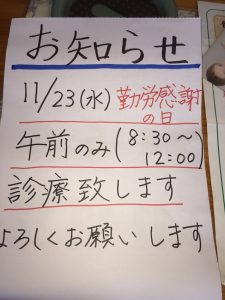 お知らせ
11/23(水) 勤労感謝の日
午前のみ(8:30〜12:00)
診療致します
よろしくお願いします